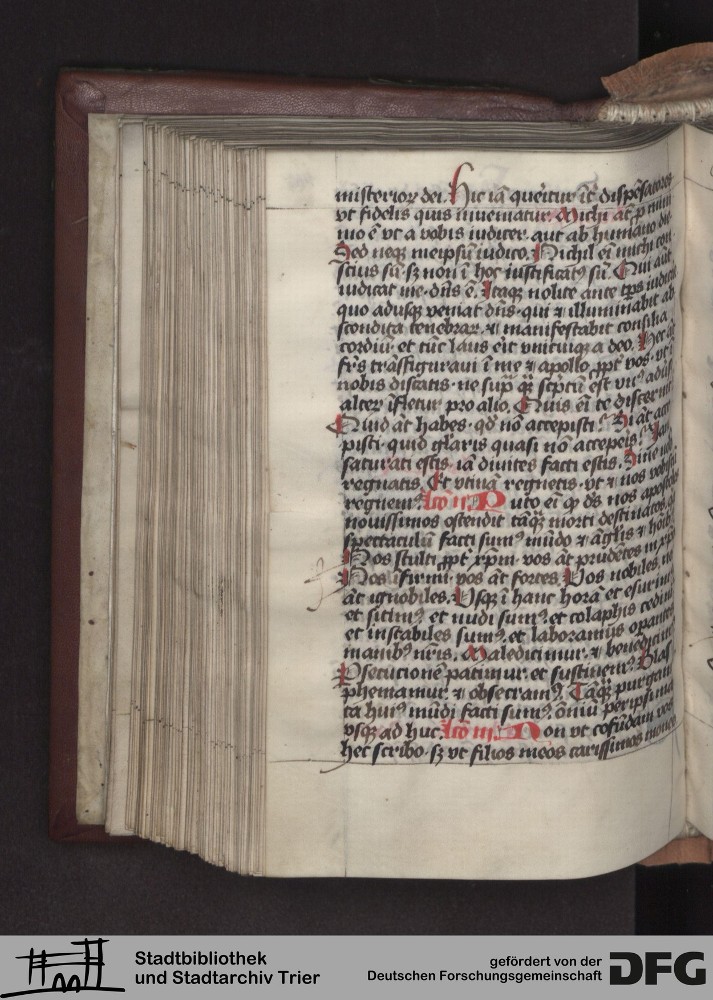 misterioꝝ dei. Hic iā querit̄ur īt̄ dispēsatores
vt fidelis quis inueniatur. Michi āt, ꝓ mini
mo ē vt a vobis iudicer, aut ab humano die.
Sed neqꝫ meipsū iudico. Nichil ei̅ michi con
scius sū. sꝫ non ī hoc iustificatꝰ sū. Qui aūt
iudicat me. dn̄s ē. Itaqꝫ nolite ante tp̄s iudicare
quo adusqꝫ veniat dn̄s. qui ⁊ illuminabit ab
scondita tenebraꝝ. ⁊ manifestabit consilia
cordiū. et tūc laus erit vnicuiqꝫ a deo. Hec āt
fr̄s trāsfiguraui ī me ⁊ apollo. ꝓpt̄ vos. vt ī
nobis discatis. ne supra qꝫ scptū est vnꝰ adūsꝰ
alter īfletur pro alio. Quis ei̅ te discernit
Quid āt habes. qd̄ nō accepisti? Si āt acce
pisti. quid gl̄aris quasi nō acceperis? Iam
saturati estis. iā diuites facti estis. Sine nobis
regnatis. Et vtinā regnetis. vt ⁊ nos vobiscū
regnemꝰ. lcō ii. Puto ei̅ ꝙ ds̄ nos apostolos
nouissimos ostendit tāqꝫ morti destinatos. qꝛ
spectaculū facti sumꝰ mūdo ⁊ āglis ⁊ hoībꝰ
Nos stulti ꝓpt̄ xp̄m. vos āt prudētes in xp̄o
Nos īfirmi. vos āt fortes. Vos nobiles. nos
āt ignobiles. Vsqꝫ ī hanc horā et esurimꝰ
et sitimꝰ et nudi sumꝰ. et colaphis cedimur
et instabiles sumꝰ. et laboramus opantes
manibꝰ nr̄is. Maledicimur. ⁊ benedicimꝰ
Psecutionē patimur. et sustinemꝰ. Blas
phemamur. ⁊ obsecramꝰ. Tāqꝫ purgamē
ta huiꝰ mūdi facti sumꝰ. oīniū peripsima
vsqꝫ ad huc. lcō iii. Non vt cōfūdam vos
hec scribo. sꝫ vt filios meos carissimos moneo
Stadtbibliothek
und Stadtarchiv Trier
gefördert von der
Deutschen Forschungsgemeinschaft
DFG